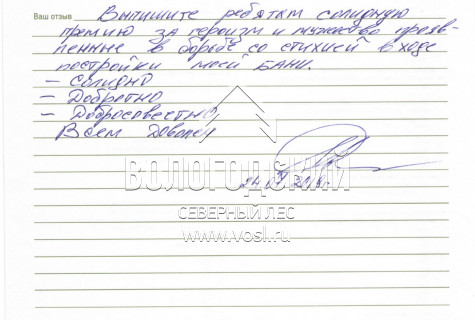 Ваш отзыв Выпишите ребятам солидную
премию за героизм и мужество прояв-
ленные в борьбе со стихией в ходе
постройки моей бани.
– Солидно
– Добротно
– Добросовестно
Всем доволен
ВОЛОГОДСКИЙ
СЕВЕРНЫЙ ЛЕС
www.vosl.ru